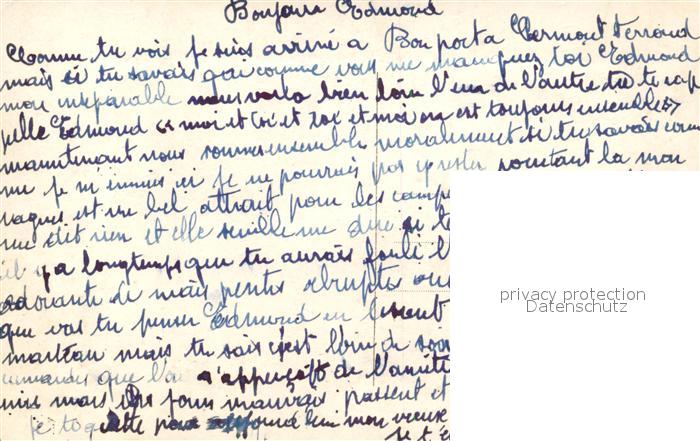 Bonjour Edmond
Comme tu vois je suis arrivé a Bon port a Clermont Ferrand
mais si tu savais qui comme vous me manquez toi Edmond
mon inséparable nous voila bien loin l'un de l'autre tu te rap
pelle Edmond "moi et toi et toi et moi on est toujours ensemble"
maintenant nous sommes ensemble moralement si tu savais com
me je m'ennuis ici je ne pourrais pas y rester pourtant la mon
tagnes est un bel attrait pour les camp
me dit rien et elle semble me dire si t
il y a longtemps que tu aurais foulé l
adorante de mais pentes abruptes
que vas tu penser Edmond en lisant
marteau mais tu sais c'est loin de
que l'on s'apperçoit de l'amiti
mais les jours mauvais passent et
je te quitte pour mon vieux
privacy protection
Datenschutz